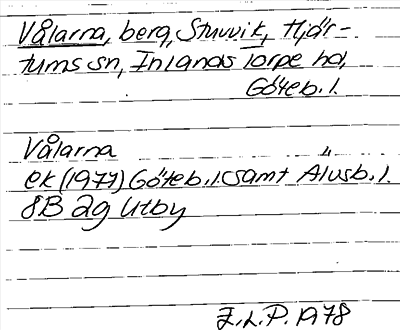 Vålarna, berg, Stuvvik, Hjär-
tums sn, Inlands Torpe hd,
Göteb. l.
Vålarna
ek (1977) Göteb. l. samt Älvsb. l.
8B 2g Utby
L.P. 1978